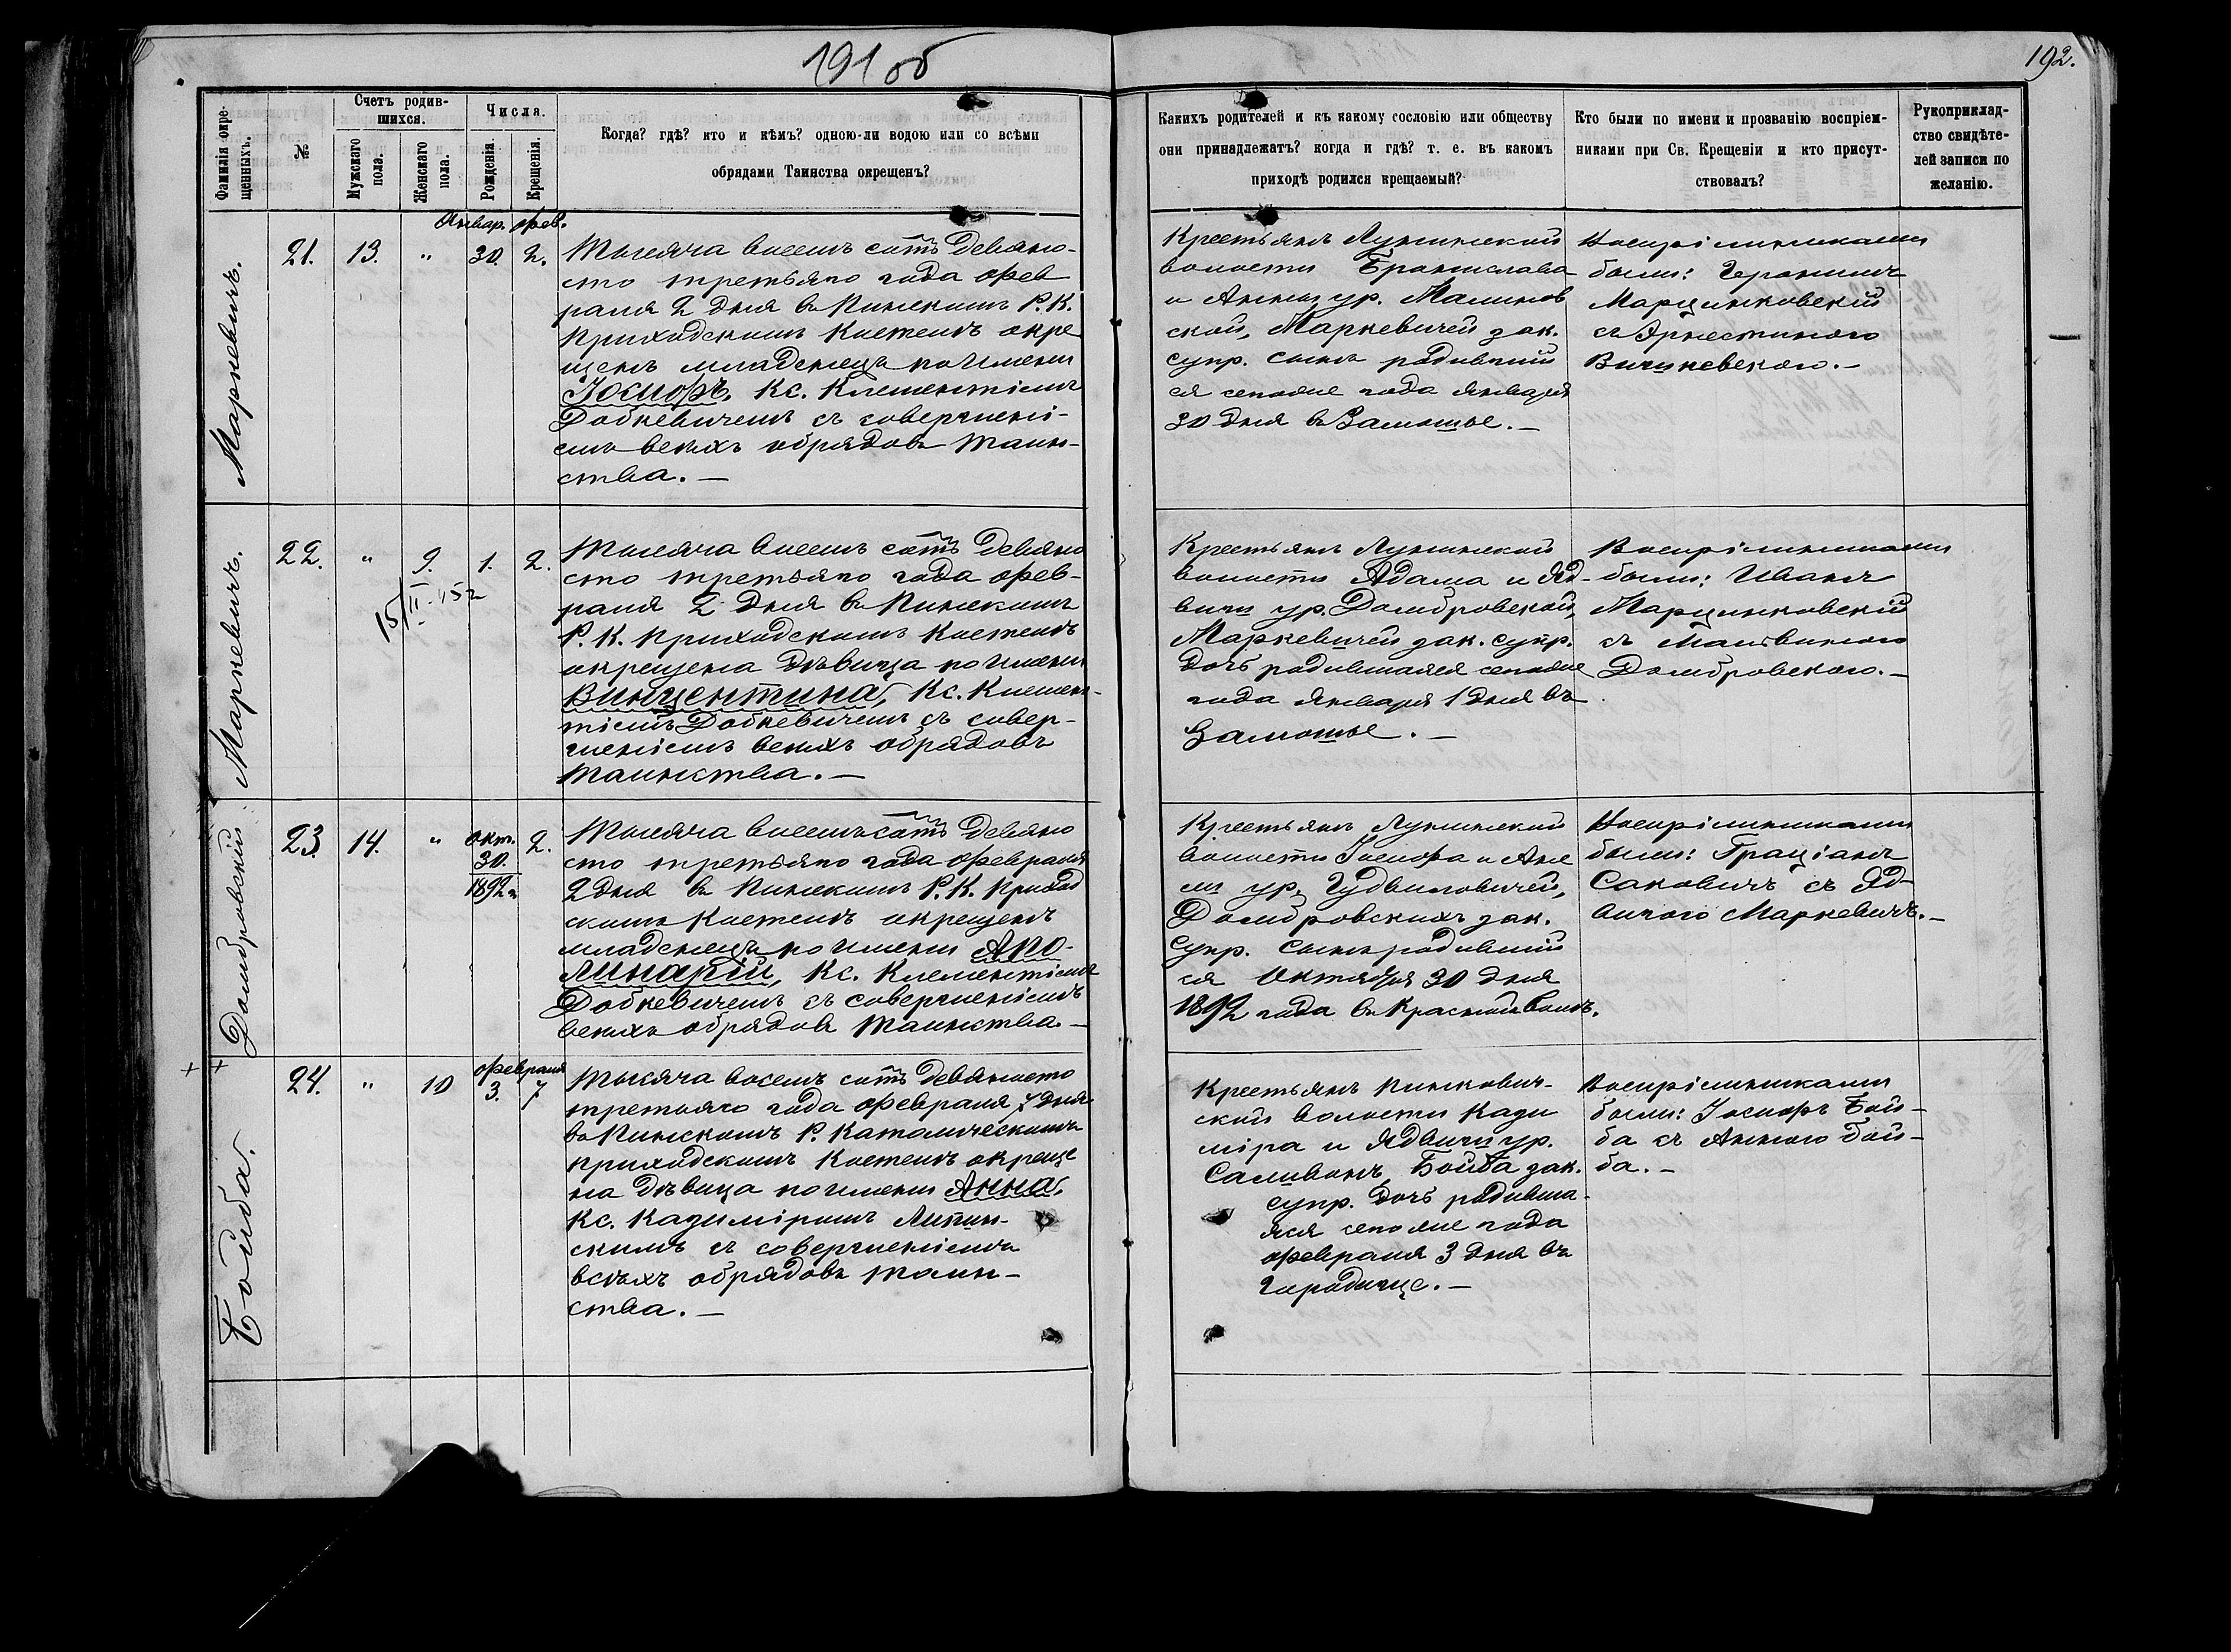 191 об
192.
Фамилія окре-
щенныхъ.
№
Счетъ родив-
шихся.
Мужскаго
пола.
Женскаго
пола.
Числа.
Рожденія.
Крещенія.
Когда? гдѣ? кто и кѣмъ? одною-ли водою или со всѣми
обрядами Таинства окрещенъ?
Какихъ родителей и къ какому сословію или обществу
они принадлежатъ? когда и гдѣ? т. е. въ какомъ
приходѣ родился крещаемый?
Кто были по имени и прозванію воспріем-
никами при Св. Крещеніи и кто присут-
ствовалъ?
Рукоприклад-
ство свидѣте-
лей записи по
желанію.
Январ. фев.
Маркевичъ.
21. 13. " 30. 2.
Тысяча восемъ сотъ девяно-
сто третьяго года фев
раля 2 дня въ Пинскомъ Р. К.
Приходскомъ Костелѣ окре
щенъ младенецъ по имени
Іосифъ, Кс. Клементіемъ
Добкевичемъ съ совершені-
емъ всѣхъ обрядовъ Таин-
ства. —
Крестьянъ Лунинской
волости Бронислава
и Анны ур. Малинов
ской, Маркевичей зак.
супр. сынъ родивший
ся сего же года Января
30 дня въ Замошье. —
Воспріемниками
были: Геронимъ
Марцинковскій
съ Эрнестиною
Вичикевскою. —
Маркевичъ.
22. " 9. 1. 2.
15/II-15 г
Тысяча восемъ сотъ девяно
сто третьяго года фев-
раля 2 дня въ Пинскомъ
Р. К. Приходскомъ Костелѣ
окрещена дѣвица по имени
Винцентина, Кс. Клемен-
тіемъ Добкевичемъ съ совер-
шеніемъ всѣхъ обрядовъ
Таинства. —
Крестьянъ Лунинской
волости Адама и Яд-
виги ур. Домбровской,
Маркевичей зак. супр.
дочь родившаяся сего же
года Января 1 дня въ
Замошье. —
Воспріемниками
были: Иванъ
Марцинковскій
съ Мальвиною
Домбровскою. —
Домбровскій
23. 14. " окт. 30. 1892 г. 2.
Тысяча восемъ сотъ девяно
сто третьяго года Февраля
2 дня въ Пинскомъ Р. К. Приход
скомъ Костелѣ окрещенъ
младенецъ по имени Апо-
линарій, Кс. Клементіемъ
Добкевичемъ съ совершеніемъ
всѣхъ обрядовъ Таинства. —
Крестьянъ Лунинской
волости Іосифа и Анѣ
ли ур. Гудвиловичей,
Домбровскихъ зак.
супр. сынъ родившій
ся Октября 30 дня
1892 года въ Красной волѣ.
Воспріемниками
были: Граціанъ
Саковичъ съ Яд-
вигою Маркевичъ. —
Бойба.
24. " 10 февраля 3. 7
Тысяча восемь сотъ девяносто
третьяго года Февраля 7 дня
въ Пинскомъ Р. Католическомъ
приходскомъ Костелѣ окреще
на дѣвица по имени Анна.
Кс. Казиміромъ Липин-
скимъ съ совершеніемъ
всѣхъ обрядовъ Таин-
ства. —
Крестьянъ Пинкович-
ской волости Кази
міра и Ядвиги ур.
Саливонъ, Бойба зак.
супр. дочь родивша-
яся сего же года
февраля 3 дня въ
Городище. —
Воспріемниками
были: Іосифъ Бой-
ба съ Анною Бой-
ба. —